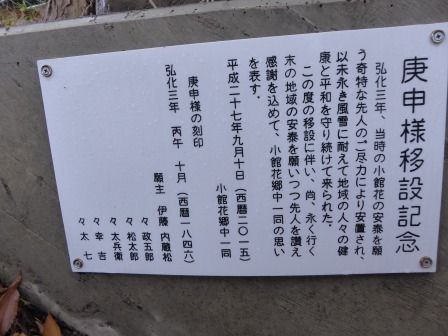 庚申様移設記念
弘化三年、当時の小館花の安泰を願
う奇特な先人のご尽力により安置され、
以来永き風雪に耐えて地域の人々の健
康と平和を守り続けて来られた。
この度の移設に伴い、尚、永く行く
末の地域の安泰を願いつつ先人を讃え
感謝を込めて、小館花郷中一同の思い
を表す。
平成二十七年九月十日(西暦二〇一五)
小館花郷中一同
庚申様の刻印
弘化三年 丙午 十月(西暦一八四六)
願主 伊藤 内蔵松
々 政五郎
々 松太郎
々 太兵衛
々 幸吉
々 太七